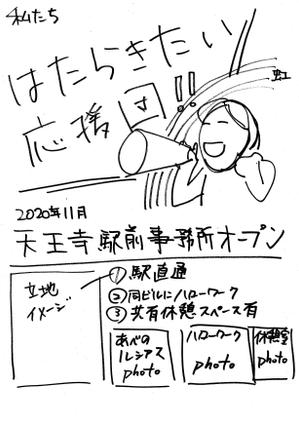 私たち
はたらきたい
応援団!!
虹
2020年11月
天王寺駅前事務所オープン
立地
イメージ
① 駅直通
② 同ビルにハローワーク
③ 共有休憩スペース有
あべの
ルシアス
photo
ハローワーク
photo
休憩室
photo